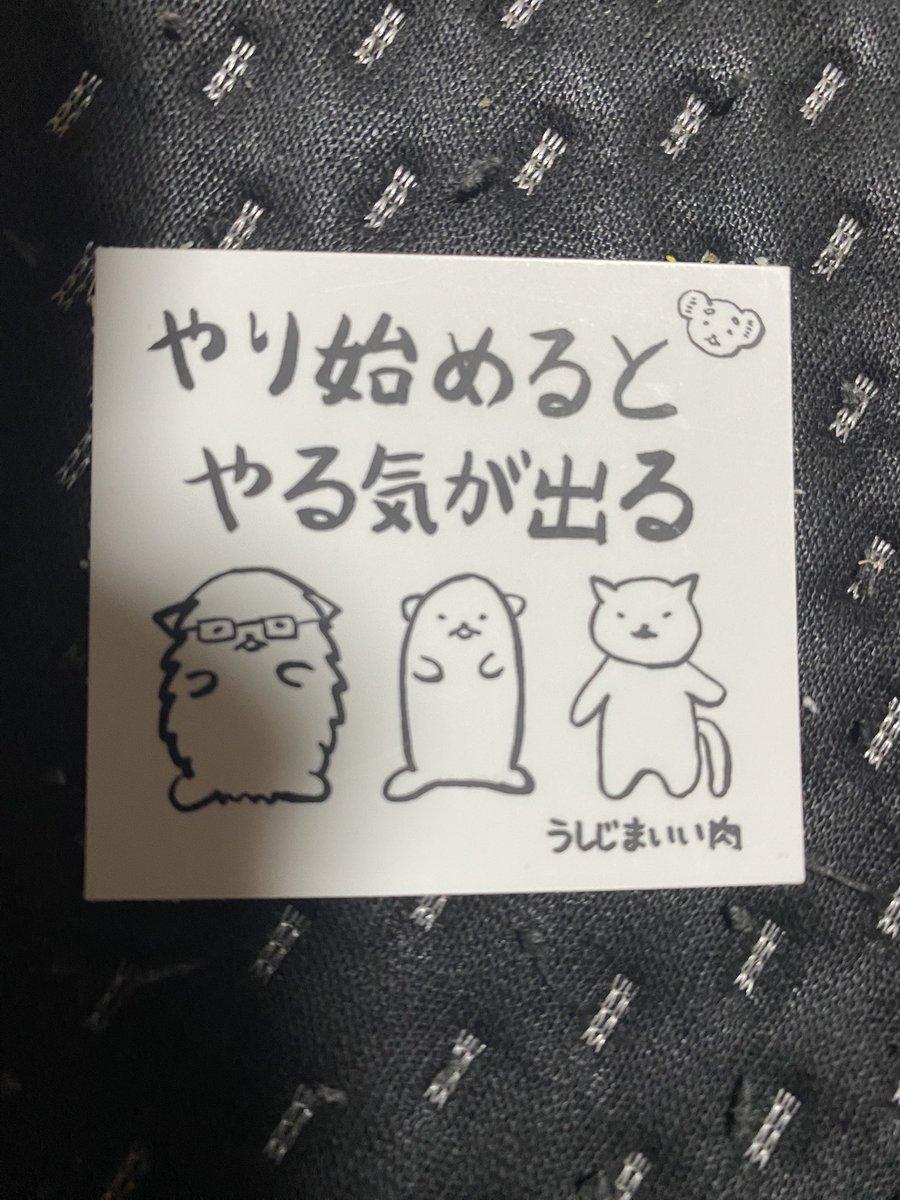 やり始めると
やる気が出る
うしじまいい肉